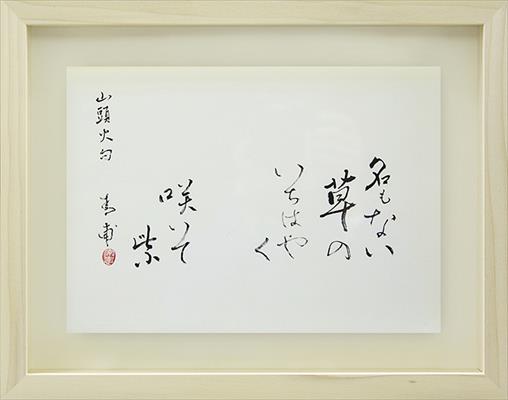 名もない
草の
いちはや
く
咲いて
紫
山頭火句